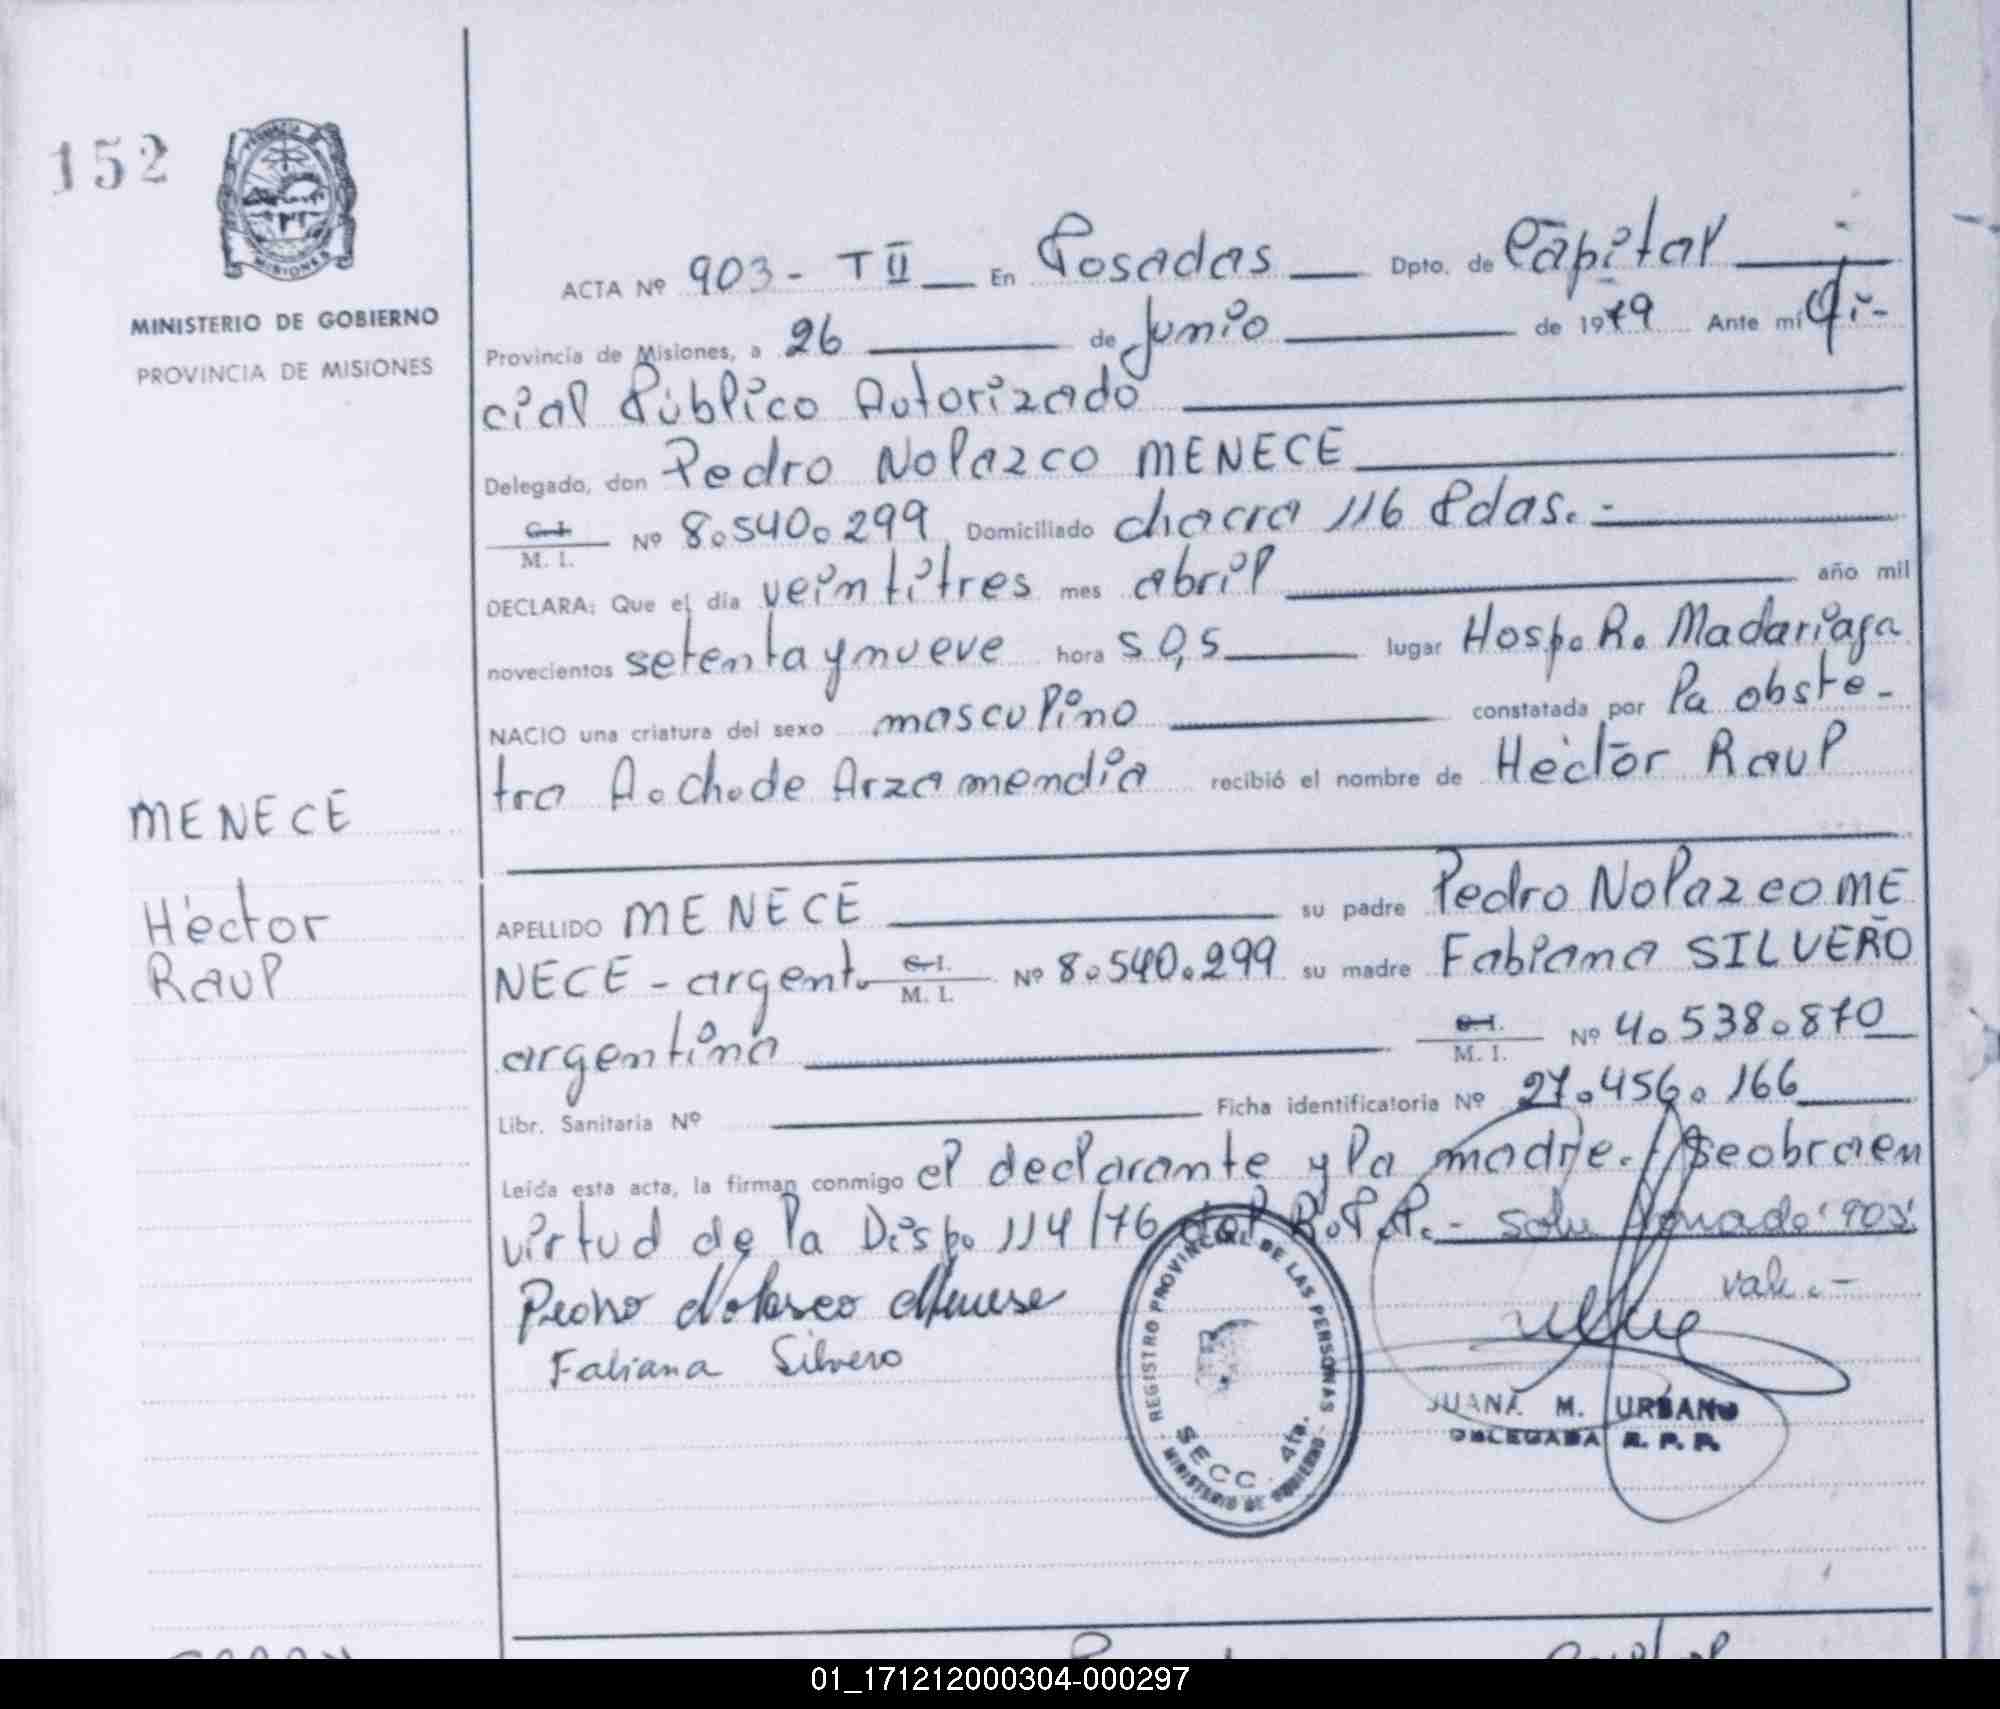 152
MINISTERIO DE GOBIERNO
PROVINCIA DE MISIONES
ACTA Nº 903 - T II En Posadas Dpto. de Capital
Provincia de Misiones, a 26 de junio de 1979 Ante mí Ofi-
cial Público Autorizado
Delegado, don Pedro Nolazco MENECE
C.I. M. I. Nº 8.540.299 Domiciliado chacra 116 Pdas.-
DECLARA: Que el día veintitres mes abril año mil
novecientos setenta y nueve hora 5 0,5 lugar Hosp. R. Madariaga
NACIO una criatura del sexo masculino constatada por la obste-
tra A. Ch. de Arzamendia recibió el nombre de Héctor Raul
MENECE
Héctor
Raul
APELLIDO MENECE su padre Pedro Nolazco ME
NECE - argent. C.I. M. I. Nº 8.540.299 su madre Fabiana SILVERO
argentina C.I. M. I. Nº 4.538.870
Libr. Sanitaria Nº Ficha identificatoria Nº 27.456.166
Leída esta acta, la firman conmigo el declarante y la madre. Se obra en
virtud de la Disp. 114/76 del R.P.P.- sobre 903
vale.-
Pedro Nolasco Menese
Fabiana Silvero
REGISTRO PROVINCIAL DE LAS PERSONAS
SECC. 4ta.
MINISTERIO DE GOBIERNO
JUANA M. URBANO
DELEGADA R. P. P.
01_171212000304-000297